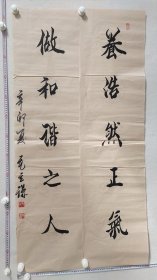 養浩然正氣
做和諧之人
辛卯夏